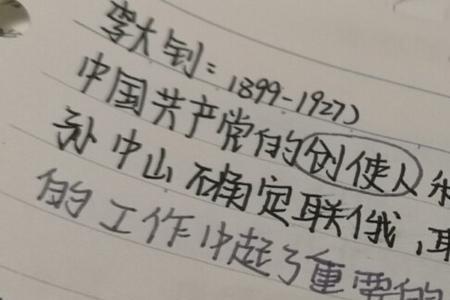 李大钊：1899-1927)
中国共产党的创使人
孙中山确定联俄，联
的工作中起了重要的